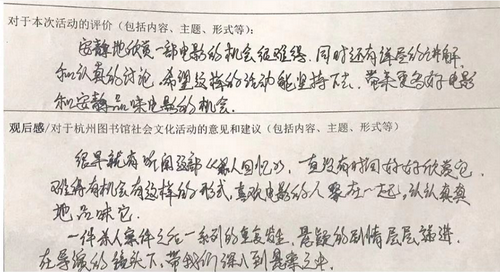 对于本次活动的评价（包括内容、主题、形式等）
安静地欣赏一部电影的机会很难得。同时还有详尽的讲解
和认真的讨论。希望这样的活动能坚持下去，带来更多好电影
和安静品味电影的机会。
观后感/对于杭州图书馆社会文化活动的意见和建议（包括内容、主题、形式等）
很早就有听闻这部《杀人回忆》，一直没有时间好好欣赏它
难得有机会有这样的形式，喜欢电影的人聚在一起，认认真真
地品味它。
一件杀人案件之后一系列的重复发生，悬疑的剧情层层推进
在导演的镜头下，带我们深入到悬案之中